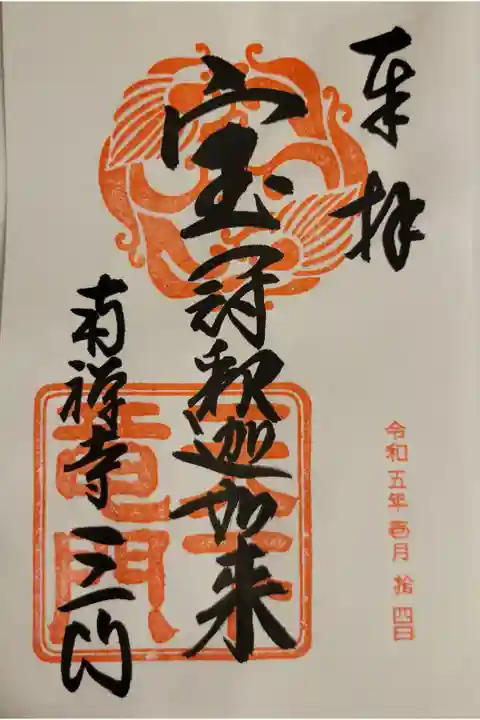 奉拝
宝冠釈迦如来
南禅寺 三門
天下
竜門
令和五年壱月拾四日